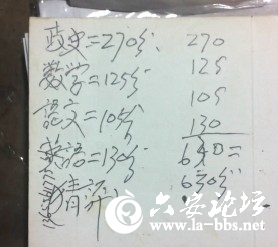 政史=270分、 270
数学=125分 125
語文=105分 105
英語=130分 130
630=
630分
猜弃
六安论坛
www.la-bbs.net